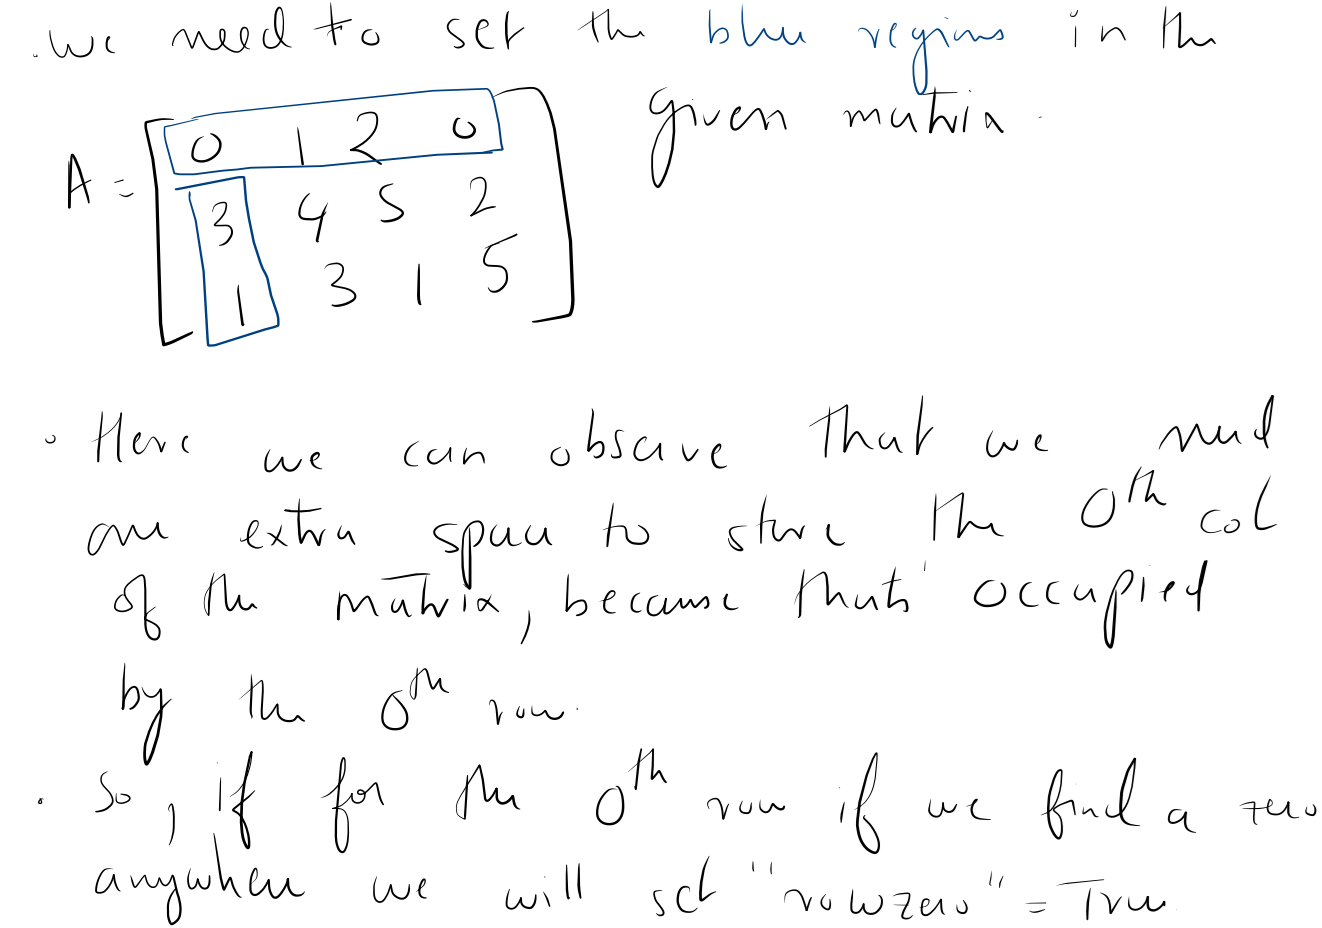 . we need to set the blue regions in the
given matrix.
A = [ 0 1 2 0
3 4 5 2
1 3 1 5 ]
. Here we can observe that we need
one extra space to store the 0th col
of the matrix, because that's occupied
by the 0th row.
. So, if for the 0th row if we find a zero
anywhere we will set "rowzero" = True.